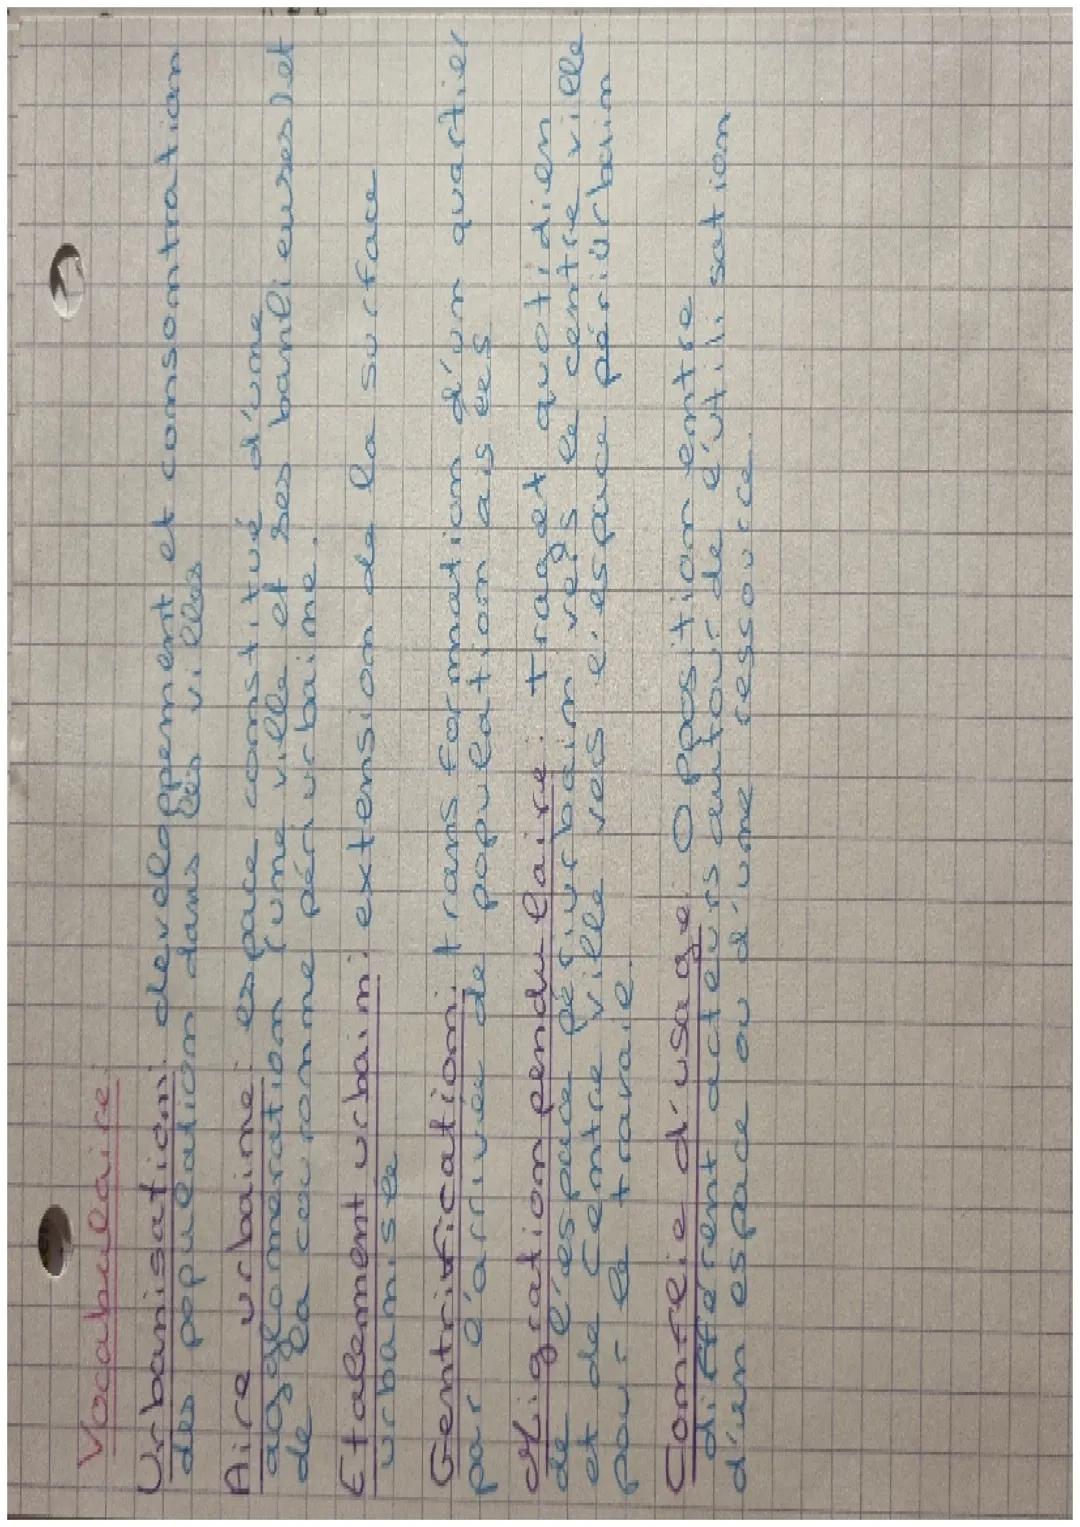 Vocabulaire:
Urbanisation: developpement et consontration
des population dans les villes
Aire urbaine: espace constitué d'une
agglomération (une ville et ses banlieuses) et
de la couronne périurbaine.
Etalement urbain: extension de la surface
urbanisée
Gentrification: transformation d'un quartier
par l'arrivée de population aisées
Migration pendulaire: traget quotidien
de l'espace périurbain vers le centre ville
et de Centre ville vers l'espace périurbain
pour le travail.
Conflie d'usage: Opposition entre
différent acteurs autour de l'utilisation
d'un espace ou d'une ressource.